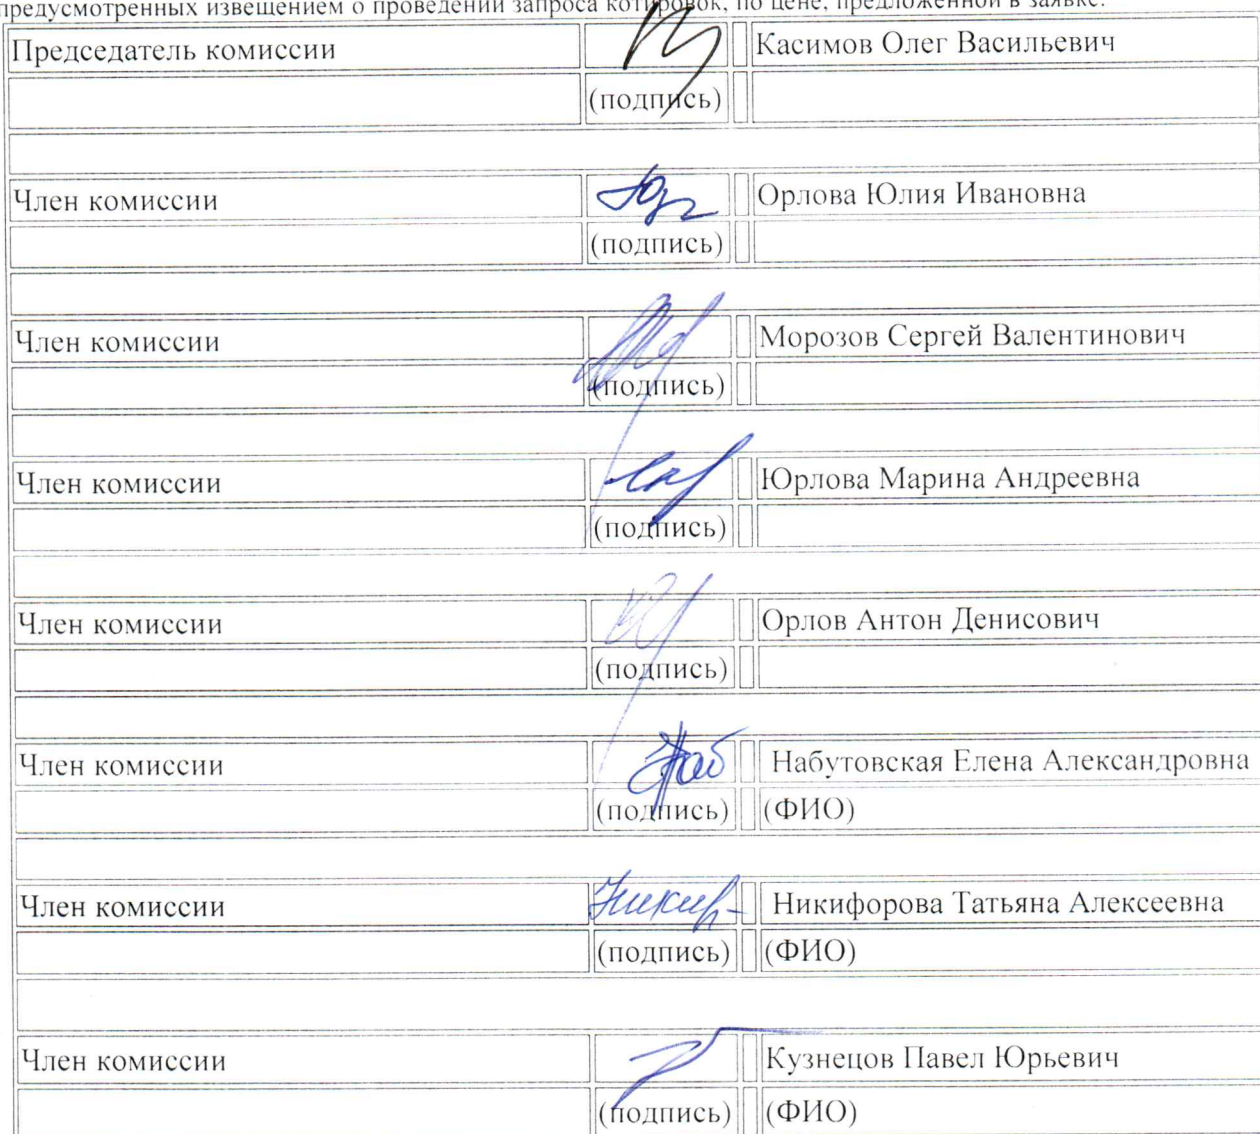 предусмотренных извещением о проведении запроса котировок, по цене, предложенной в заявке.
Председатель комиссии Касимов Олег Васильевич
(подпись)
Член комиссии Орлова Юлия Ивановна
(подпись)
Член комиссии Морозов Сергей Валентинович
(подпись)
Член комиссии Юрлова Марина Андреевна
(подпись)
Член комиссии Орлов Антон Денисович
(подпись)
Член комиссии Набутовская Елена Александровна
(подпись) (ФИО)
Член комиссии Никифорова Татьяна Алексеевна
(подпись) (ФИО)
Член комиссии Кузнецов Павел Юрьевич
(подпись) (ФИО)